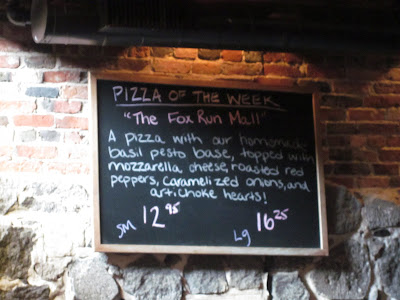 PIZZA OF THE WEEK
"The Fox Run Mall"
A pizza with our homemade
basil pesto base, topped with
mozzarella, cheese, roasted red
peppers, caramelized onions, and
artichoke hearts!
SM 12 95
Lg 16 25